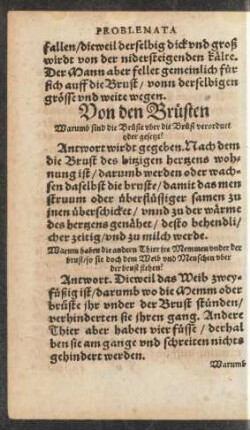 PROBLEMATA
fallen/dieweil derselbig dick vnd groß
wirdt von der nidersteigenden kälte.
Der Mann aber fellet gemeinlich für
sich auff die Brust/ vonn derselbigen
grösse vnd weite wegen.
Von den Brüsten
Warumb sind die Brüste vber die Brust verordnet
oder gesetzt?
Antwort wirdt gegeben. Nach dem
die Brust des hitzigen hertzens wohn
nung ist/ darumb werden oder wach-
sen daselbst die bruste/ damit das men
struum oder überflüssiger samen zu
jnen überschicket/ vnnd zu der wärme
des hertzens genähet/ desto behendli/
cher zeitig/vnd zu milch werde.
Warum haben die andern Thier ire Memmen vnder der
brust/so sie doch dem Weib vnd Menschen vber
der brust stehen?
Antwort. Dieweil das Weib zwey-
füßig ist/darumb wo die Memm oder
brüste jhr vnder der Brust stünden/
verhinderten sie jhren gang. Andere
Thier aber haben vier füsse/ derhal
ben sie am gange vnd schreiten nichts
gehindert werden.
Warumb